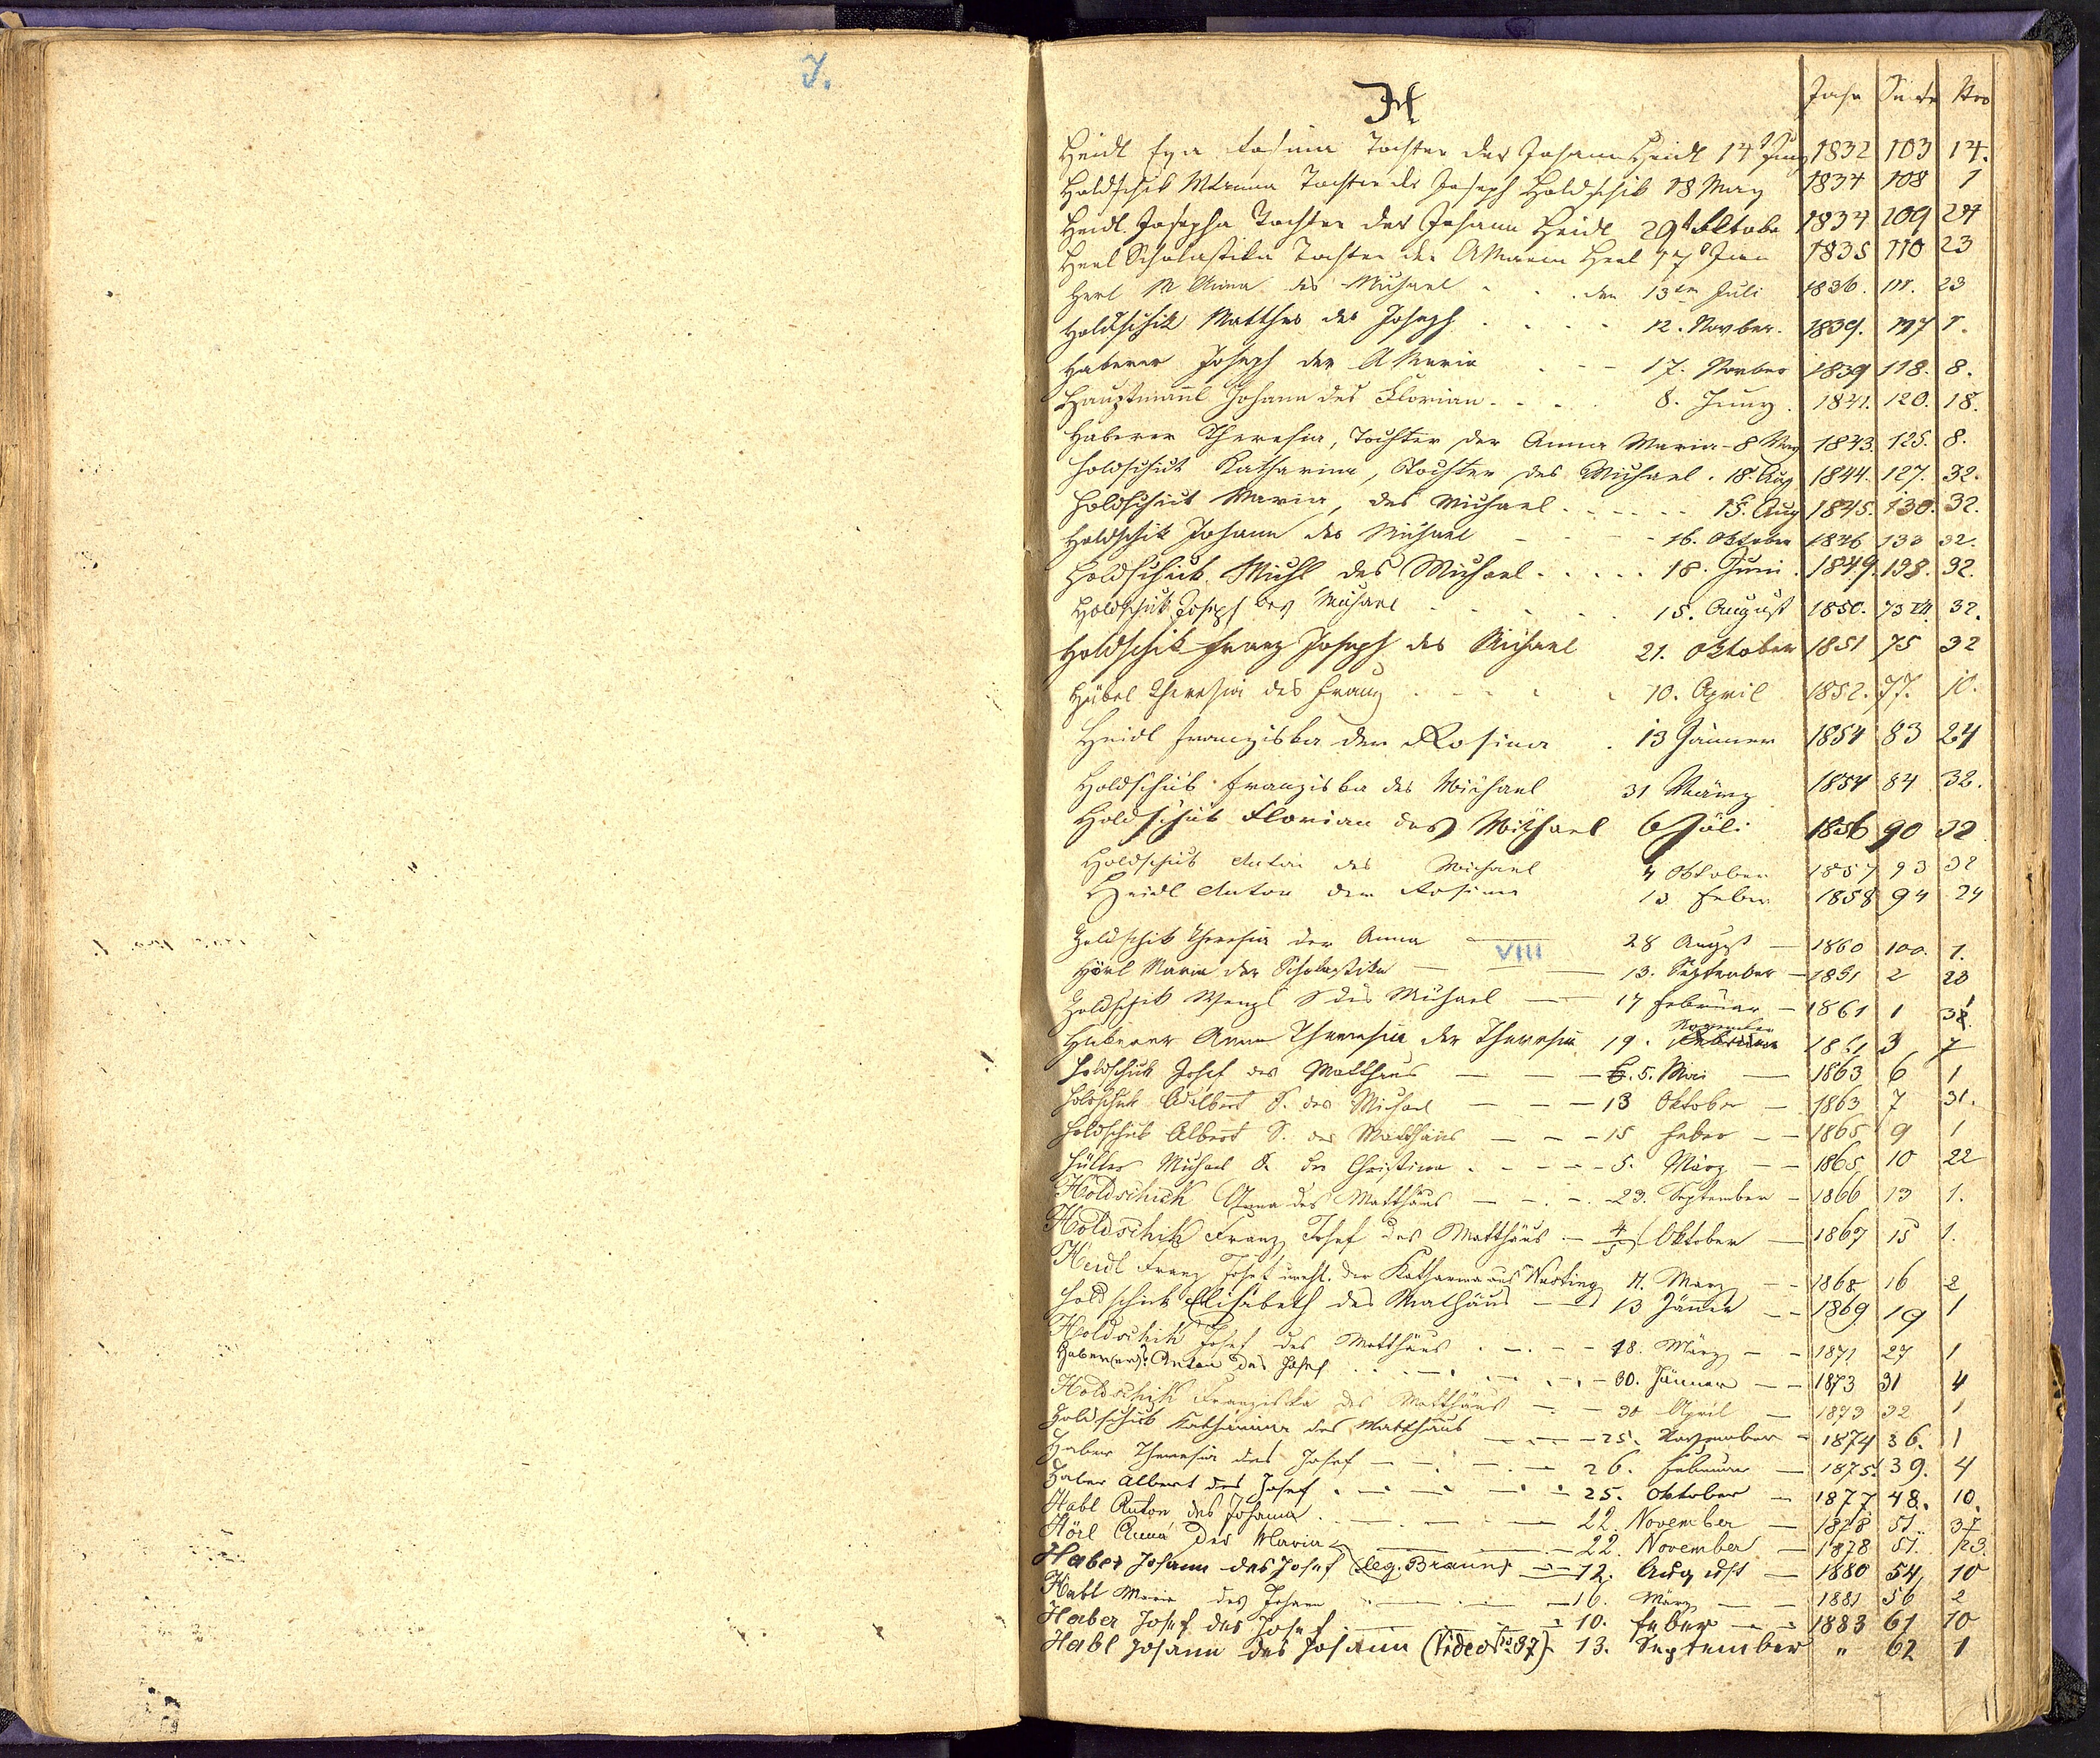 J.
H
Jahr Seite Nro
Heidl Eva Rosina Tochter des Johann Heidl 14t Juny 1832 103 14.
Holdschik M Anna Tochter des Joseph Holdschik 18 May 1834 108 1
Heidl Josepha Tochter des Johann Heidl 29t Oktober 1834 109 24
Herl Scholastika Tochter der A Maria Herl 17t 1835 110 23
Herl M Anna des Michael . . den 13ten Juli 1836. 111. 23
Holdschik Matthes des Joseph . . . . 12. Novber. 1839. 117 1.
Haberer Joseph der A Maria . - - 17. Novber 1839 118. 8.
Hauptmannl Johann des Florian . . . . 8. Juny. 1841. 120. 18.
Haberer Theresia, Tochter der Anna Maria - 8 May 1843. 125. 8.
Holdschick Katharina, Tochter des Michael. 18. Aug 1844. 127. 32.
Holdschick Maria, des Michael . . . . . . 15. Aug 1845. 130. 32.
Holdschik Johann des Michael - - - - 16. Oktober 1846 133 32.
Holdschick Michl des Michael . . . . . 18. Juni. 1849. 138. 32.
Holdschik Joseph des Michael . . . . 15. August 1850. 73 VII. 32.
Holdschik Franz Joseph des Michael 21. Oktober 1851 75 32
Hübel Theresia des Franz . . . . . 10. April 1852. 77. 10.
Heidl Franziska der Rosina . 13 Jänner 1854 83 24
Holdschik Franziska des Michael 31 März 1854 84 32.
Holdschik Florian des Michael 6 Juli 1856 90 32
Holdschik Anton des Michael 4 Oktober 1857 93 32
Heidl Anton der Rosina 13 Feber 1858 94 24
Holdschik Theresia der Anna — 28 August — 1860 100. 1.
VIII
Hörl Maria der Scholastika — — — 13. September — 1861 2 23
Holdschik Wenzl S des Michael — — 17 Februar — 1861 1 31
Haberer Anna Theresia der Theresia 19. November 1861 3 7
Holdschick Josef des Matthäus — — — 5. Mai — 1863 6 1
Holdschik Adalbert S. des Michael — — — 13 Oktober — 1863 7 31.
Holdschik Albert S. des Matthäus — — — 15 Feber — — 1865 9 1
Hüller Michael S. der Christina . - - - - 5. März — — 1865 10 22
Holdschick Anna des Matthäus — - . - . 23. September — 1866 13 1.
Holdschik Franz Josef des Matthäus — 4/5 Oktober — 1867 15 1.
Heidl Franz Josef unehl. der Katharina aus 4. März — — 1868 16 2
Holdschick Elisabeth des Mathäus — — 13 Jänner — — 1869 19 1
Holdschik Josef des Matthäus . — . — . — 18. März — — 1871 27 1
Haber(er)? Anton des Josef . . — . — . — . — 30. Jänner — — 1873 31 4
Holdschick Franziska des Matthäus — . — 30 April — 1873 32 1
Holdschick Katharina des Matthäus — . — . — 25. November — 1874 36. 1
Haber Theresia des Josef — — . — . — 26. Februar — 1875. 39. 4
Haber Albert des Josef . — . — . — . — 25. Oktober — 1877 48. 10.
Habl Anton des Johann . — . — . — 22. November — 1878 51. 37
Hörl Anna der Maria — — — 22. November — 1878 51. 123.
Haber Johann des Josef (leg. Braun) — — 12. August — 1880 54, 10
Habl Maria des Johann — . — . — 16. März — — 1881 56 2
Haber Josef des Josef . — — — 10. Feber — — 1883 61 10
Habl Johann des Johann (Vide No 37). 13. September " 62 1